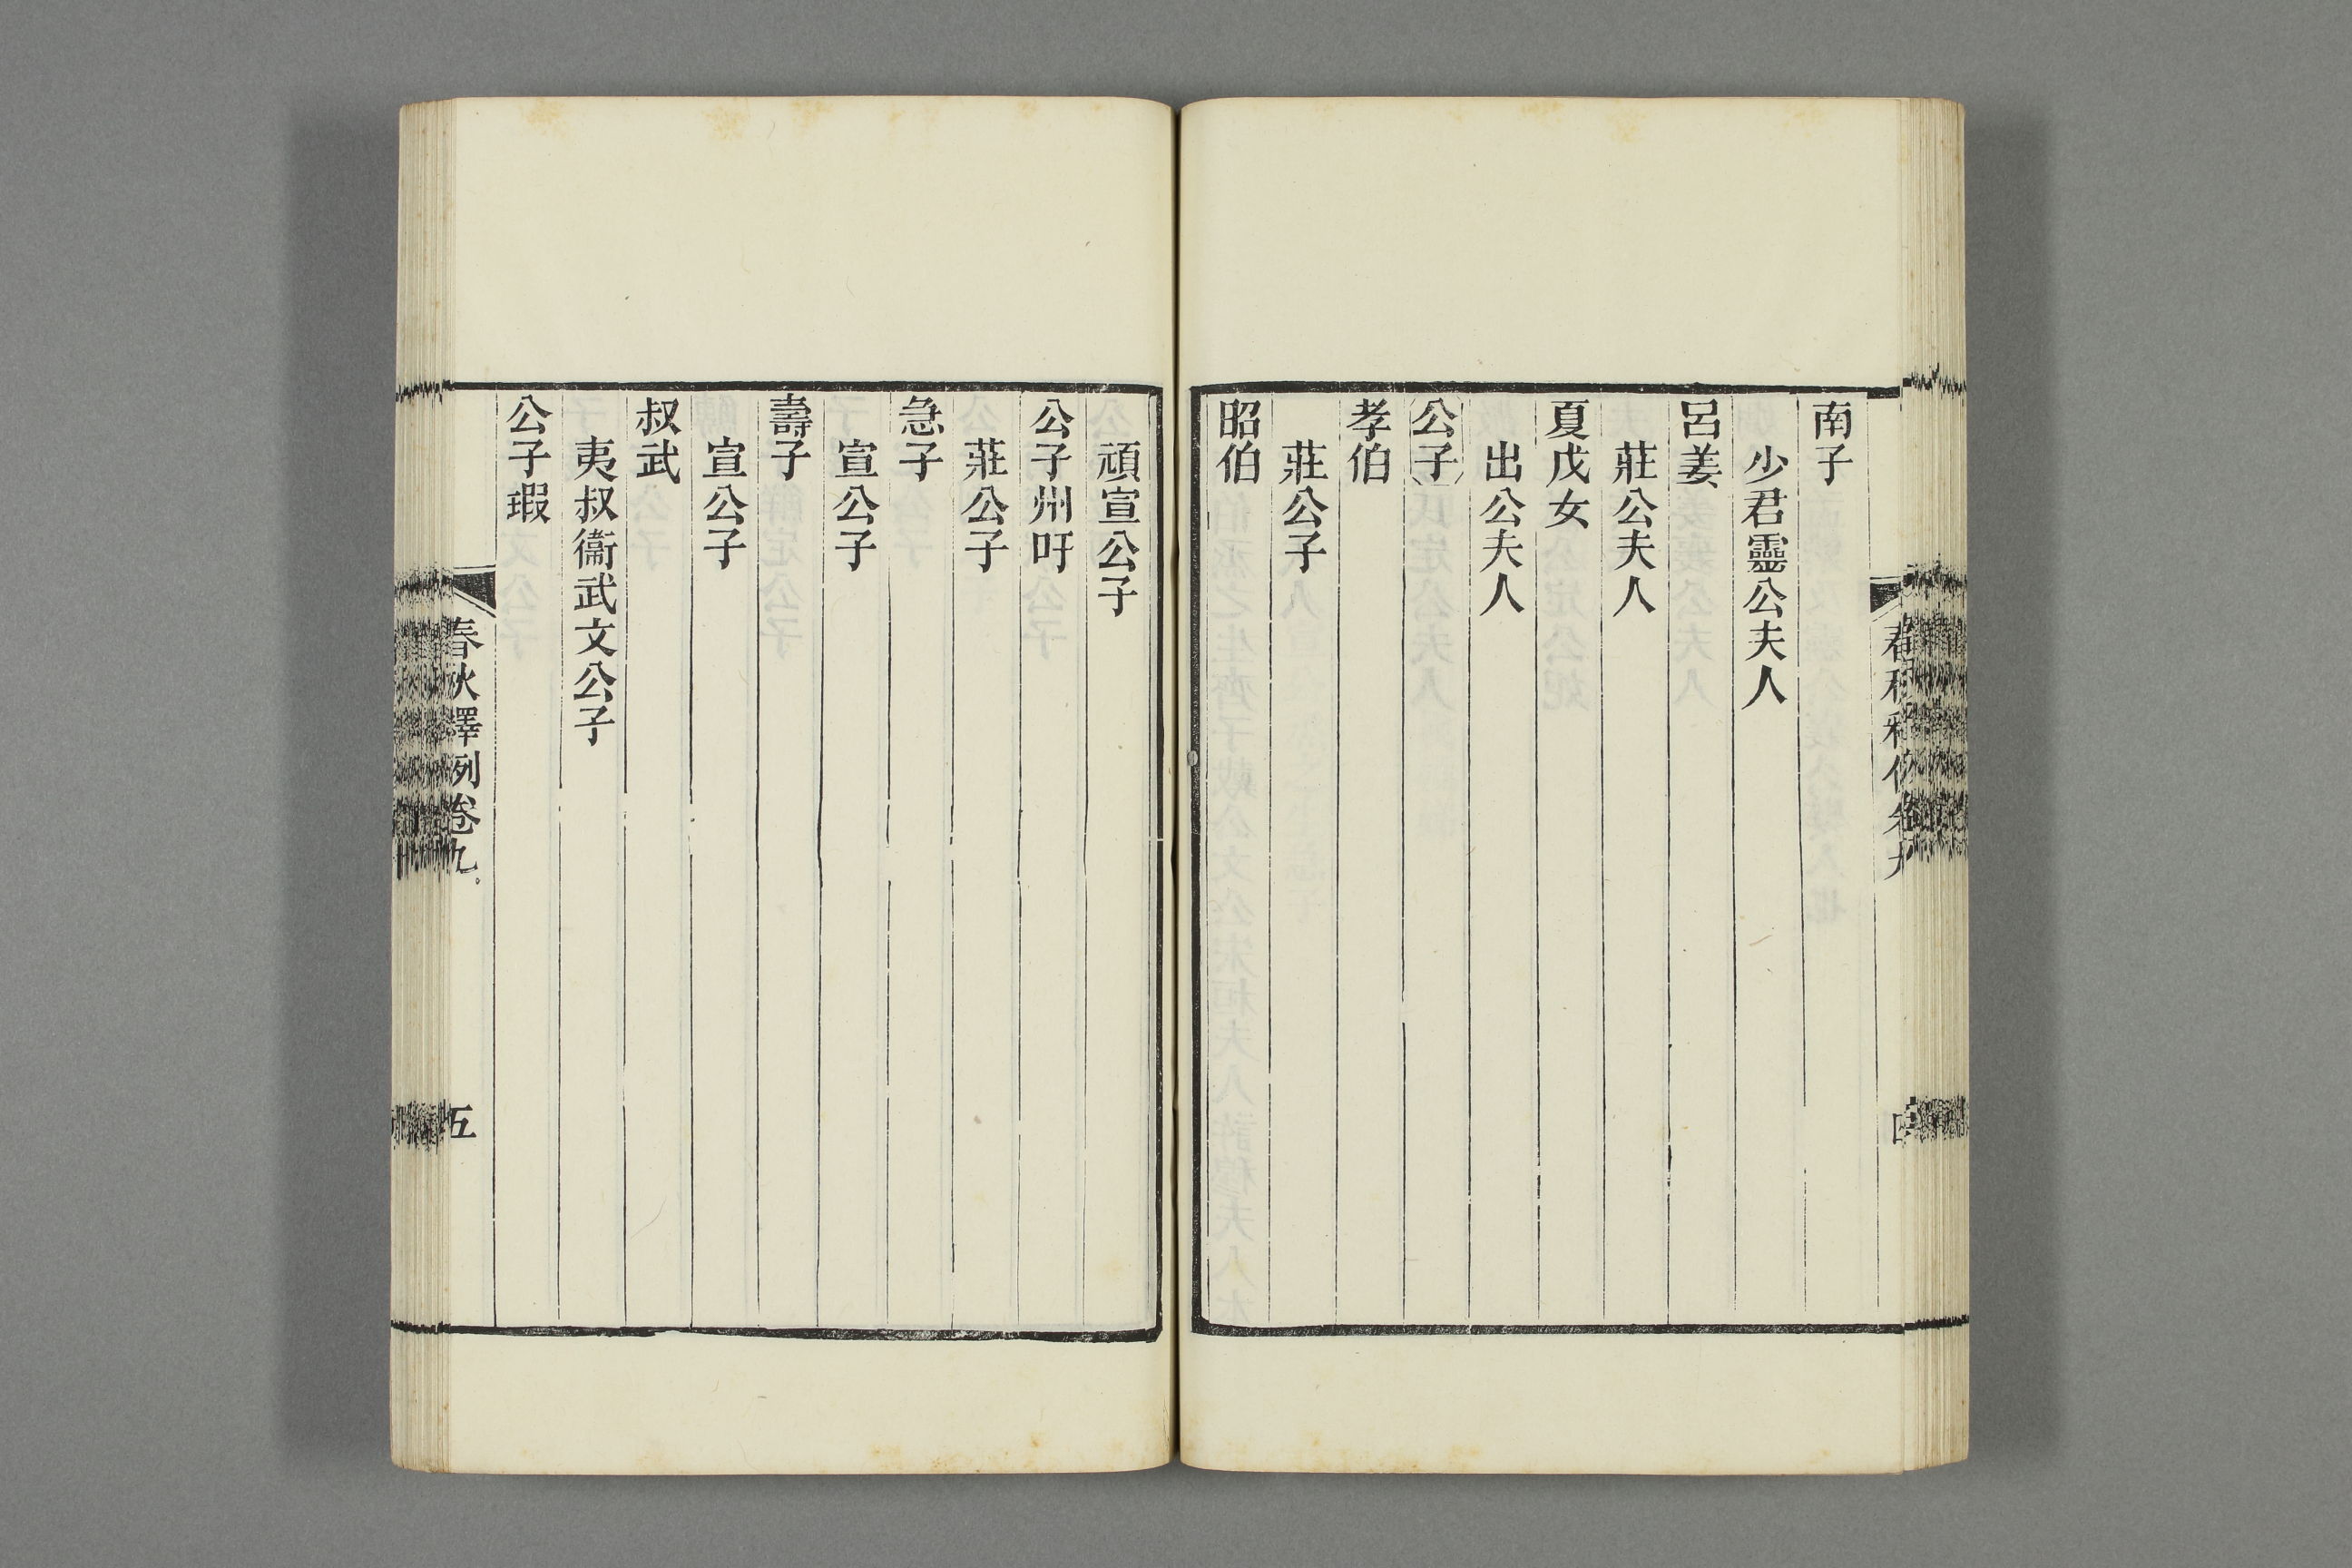 南子
少君靈公夫人
呂姜
莊公夫人
夏戊女
出公夫人
公子
孝伯
莊公子
昭伯
頑宣公子
公子州吁
莊公子
急子
宣公子
壽子
宣公子
叔武
夷叔衞武文公子
公子瑕
春秋釋例卷九
五